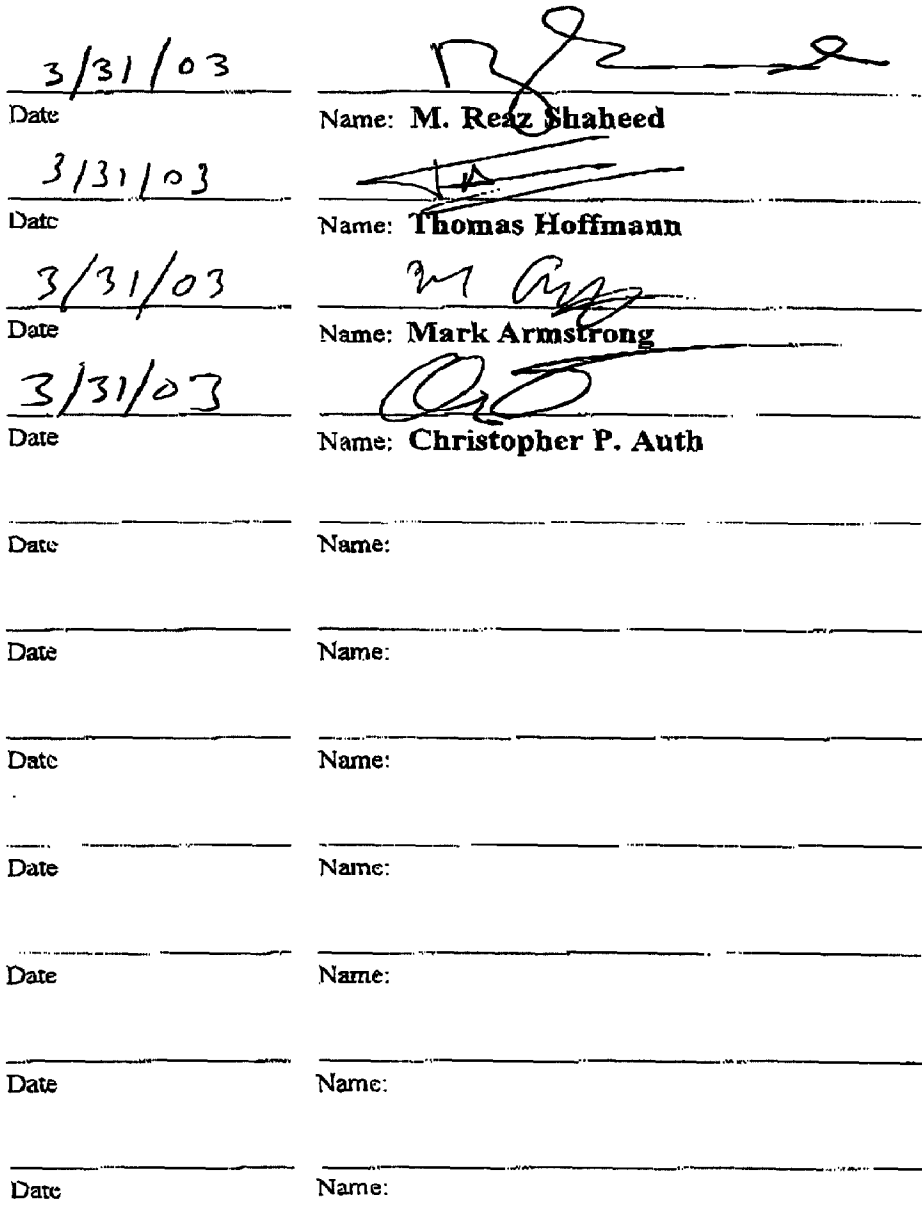 3/31/03
Date Name: M. Reaz Shaheed
3/31/03
Date Name: Thomas Hoffmann
3/31/03
Date Name: Mark Armstrong
3/31/03
Date Name: Christopher P. Auth
Date Name:
Date Name:
Date Name:
Date Name:
Date Name:
Date Name:
Date Name: